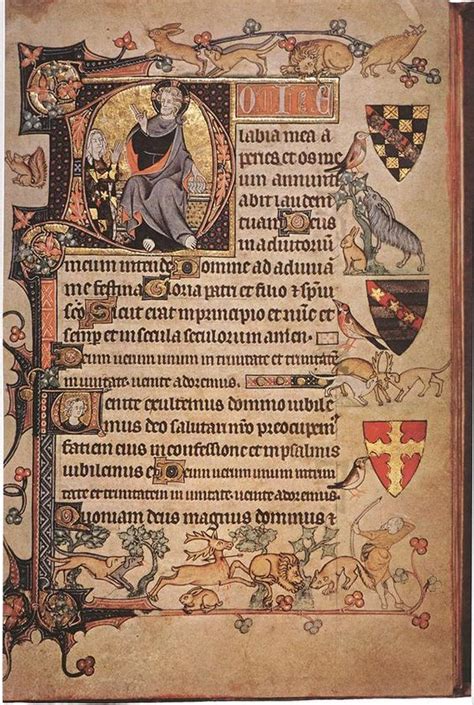 Domine
labia mea a
peries et os me
um annunti
abit laudem
tuam Deus
in adiutoriū
meum intende Domine ad adiuuā
me festina Gloria patri et filio & sp̄ui
sc̄o Sicut erat in principio et nūc et
semp et in secula seculorum amen.
Deum uerum unum in trinitate et trinitatē
in unitate uenite adoremus.
Uenite exultemus domino iubile
mus deo salutari nr̄o preocupem̄
faciem eius in confessione et in psalmis
iubilemus ei Deum uerum unum in trini
tate et trinitatem in unitate uenite adoremus.
Quoniam deus magnus dominus &